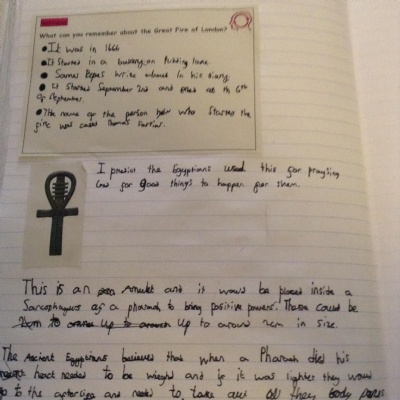 What can you remember about the Great Fire of London?
It was in 1666
It started in a bakery on Pudding lane
Samel Pepes write about in his diary
It started September 2nd and ended at th 6th
of September.
The name of the person who started the
fire was called Thomas
I predict the Egyptians used this for praying
God for good things to happen for them.
This is an Amulet and it would be placed inside a
Sarcophagus of a pharaoh, to bring positive powers. These could be
Up to around 2cm in size.
The Ancient Egyptians believed that when a Pharaoh died his
heart needed to be weighd and if it was lighter they would
go to the afterlife and need to take out all they body parts